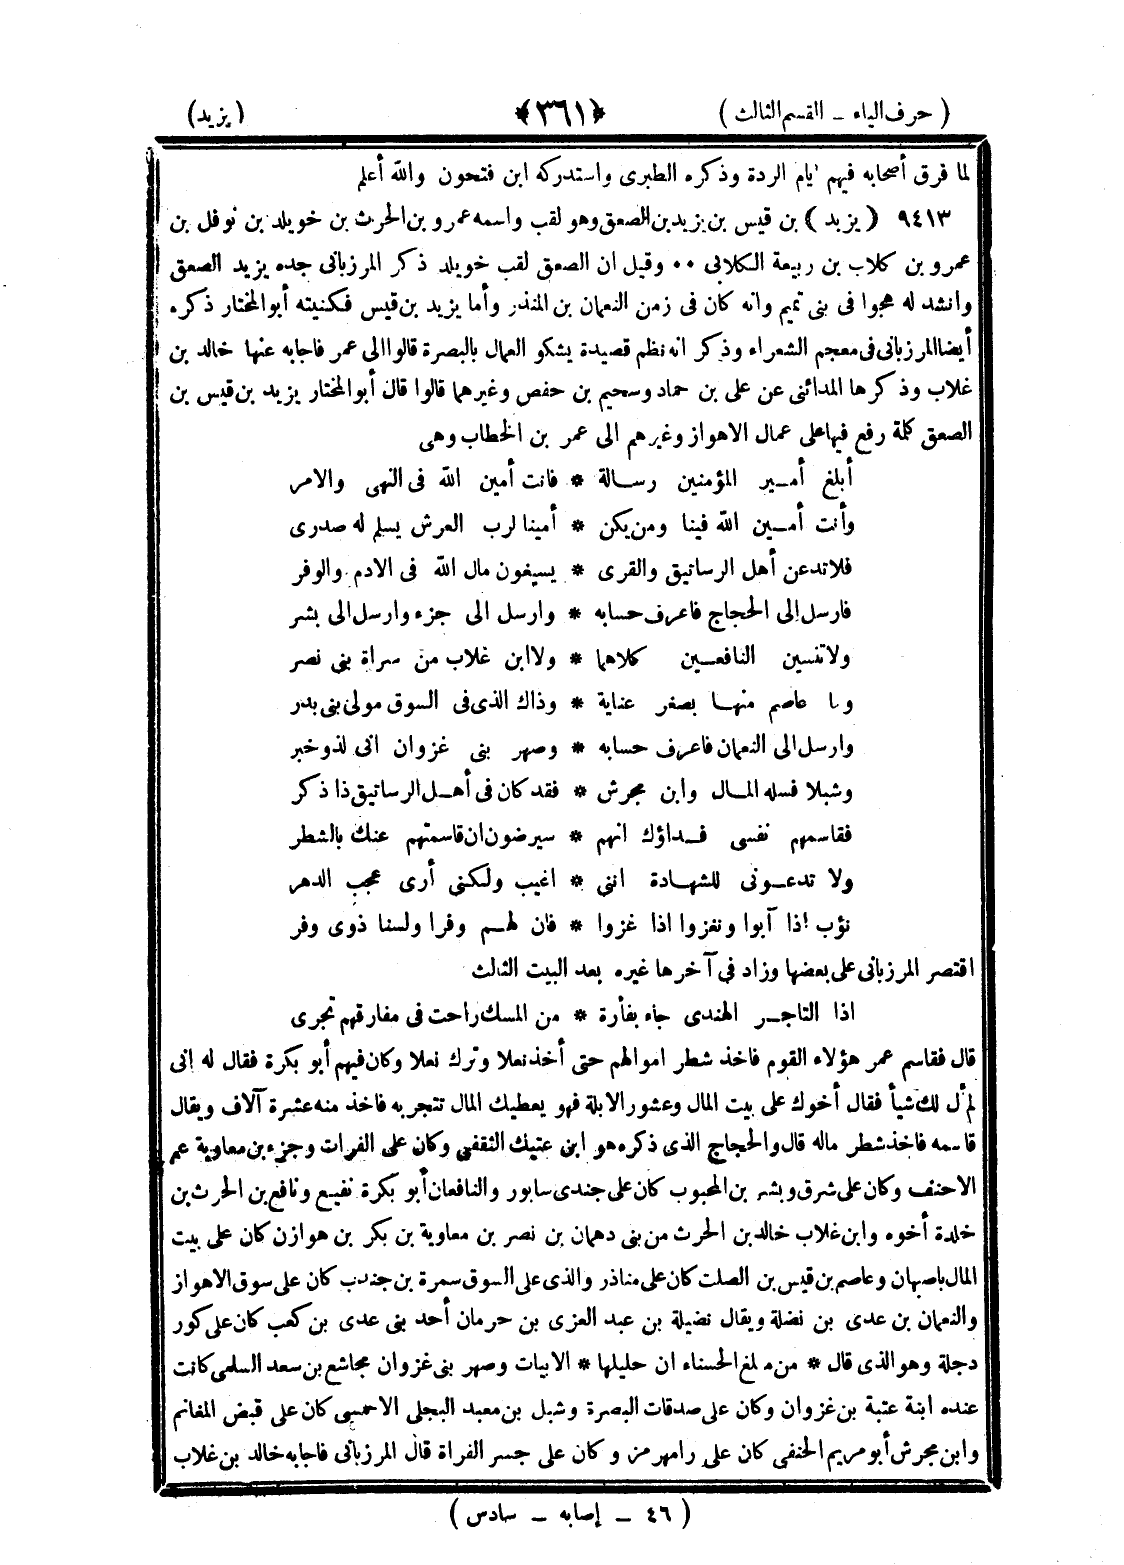 ( حرف الياء ـ القسم الثالث ) ﴿٣٦١﴾ ( يزيد )
لما فرق أصحابه فيهم أيام الردة وذكره الطبرى واستدركه ابن فتحون والله أعلم
٩٤١٣ ( يزيد ) بن قيس بن يزيد بن الصعق وهو لقب واسمه عمرو بن الحرث بن خويلد بن نوفل بن
عمرو بن كلاب بن ربيعة الكلابى ٠٠ وقيل ان الصعق لقب خويلد ذكر المرزبانى جده يزيد الصعق
وانشد له هجوا فى بنى تميم وانه كان فى زمن النعمان بن المنذر وأما يزيد بن قيس فكنيته أبو المختار ذكره
أيضا المرزبانى فى معجم الشعراء وذكر انه نظم قصيدة يشكو العمال بالبصرة قالوا الى عمر فاجابه عنها خالد بن
غلاب وذكرها المدائنى عن على بن حماد وسحيم بن حفص وغيرهما قالوا قال أبو المختار يزيد بن قيس بن
الصعق كلمة رفع فيها على عمال الاهواز وغيرهم الى عمر بن الخطاب وهى
أبلغ أمـير المؤمنين رسـالة * فانت أمين الله فى النهى والامر
وأنت أمـين الله فينا ومن يكن * أمينا لرب العرش يسلم له صدرى
فلا تدعن أهل الرساتيق والقرى * يسيغون مال الله فى الادم والوفر
فارسل إلى الحجاج فاعرف حسابه * وارسل الى جزء وارسل الى بشر
ولا تنسين النافعـين كلاهما * ولا ابن غلاب من سراة بنى نصر
وما عاصم منهـا بصفر عناية * وذاك الذى فى السوق مولى بنى بدر
وارسل الى النعمان فاعرف حسابه * وصهر بنى غزوان انى لذو خبر
وشبلا فسله المـال وابن محرش * فقد كان فى أهـل الرساتيق ذا ذكر
فقاسمهم نفسى فـداؤك انهم * سيرضون ان قاسمتهم عنك بالشطر
ولا تدعـونى للشهـادة اننى * اغيب ولكنى أرى عجب الدهر
نؤب اذا آبوا ونغزوا اذا غزوا * فان لهـم وفرا ولسنا ذوى وفر
اقتصر المرزبانى على بعضها وزاد فى آخرها غيره بعد البيت الثالث
اذا التاجـر الهندى جاء بفأرة * من المسك راحت فى مفارقهم تجرى
قال فقاسم عمر هؤلاء القوم فاخذ شطر اموالهم حتى أخذ نعلا وترك نعلا وكان فيهم أبو بكرة فقال له انى
لم أل لك شيأ فقال أخوك على بيت المال وعشور الابلة فهو يعطيك المال تتجر به فاخذ منه عشرة آلاف ويقال
قاسمه فاخذ شطر ماله قال والحجاج الذى ذكره هو ابن عتيك الثقفى وكان على الفرات وجزء بن معاوية عم
الاحنف وكان على شرق وبشر بن المحبوب كان على جندى سابور والنافعان أبو بكرة نفيع ونافع بن الحرث بن
خلدة أخوه وابن غلاب خالد بن الحرث من بنى دهمان بن نصر بن معاوية بن بكر بن هوازن كان على بيت
المال باصبهان وعاصم بن قيس بن الصلت كان على مناذر والذى على السوق سمرة بن جندب كان على سوق الاهواز
والنعمان بن عدى بن نضلة ويقال نضيلة بن عبد العزى بن حرمان أحد بنى عدى بن كعب كان على كور
دجلة وهو الذى قال * من مبلغ الحسناء ان حليلها * الابيات وصهر بنى غزوان مجاشع بن سعد السلمى كانت
عنده ابنة عتبة بن غزوان وكان على صدقات البصرة وشبل بن معبد البجلى الاحمسى كان على قبض المغانم
وابن محرش أبو مريم الحنفى كان على رامهرمز وكان على جسر الفراة قال المرزبانى فاجابه خالد بن غلاب
( ٤٦ ـ إصابه ـ سادس )